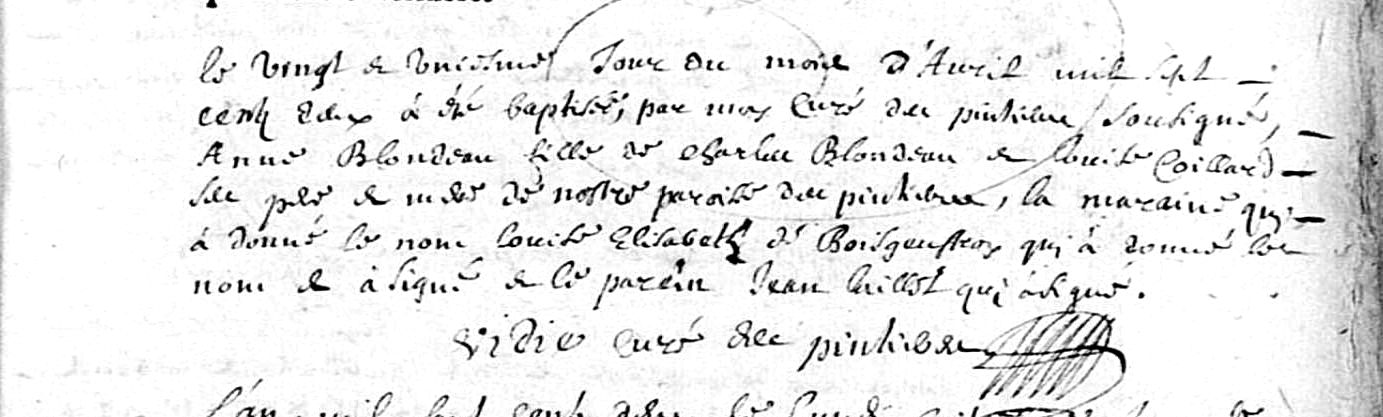 le vingt & uniesme Jour du mois d'Avril mil sept
cents deux à été baptisée, par moy Curé des pintieres soubsigné,
Anne Blondeau fille de Charles Blondeau & Louise Coillard
ses pere & mere de nostre paroisse des pintieres, la maraine qui
à donné le nom Louise Elisabeth de Boisgeuffroy qui à donné le
nom & à signé & le parein Jean qui à signé.
Vidie Curé des pintieres
L'an mil sept cents deux le lundi